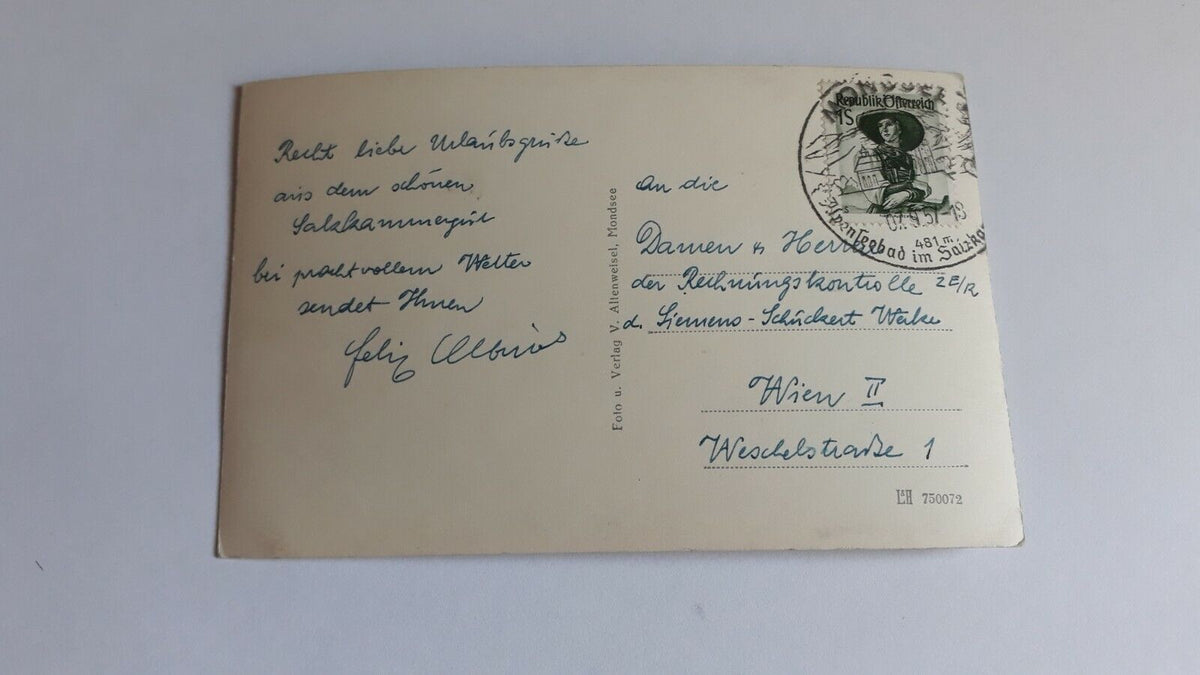 Recht liebe Urlaubsgrüße
aus dem schönen
Salzkammergut
bei prachtvollem Wetter
sendet Ihnen
Felix
Foto u. Verlag V. Altenweisel, Mondsee
MONDSEE
Republik Österreich
1S
07.9.57-18
481 m.
Alpenseebad im Salzka
An die
Damen u Herren
der Rechnungskontrolle ZE/R
d. Siemens-Schuckert Werke
Wien II
Weschelstraße 1
750072